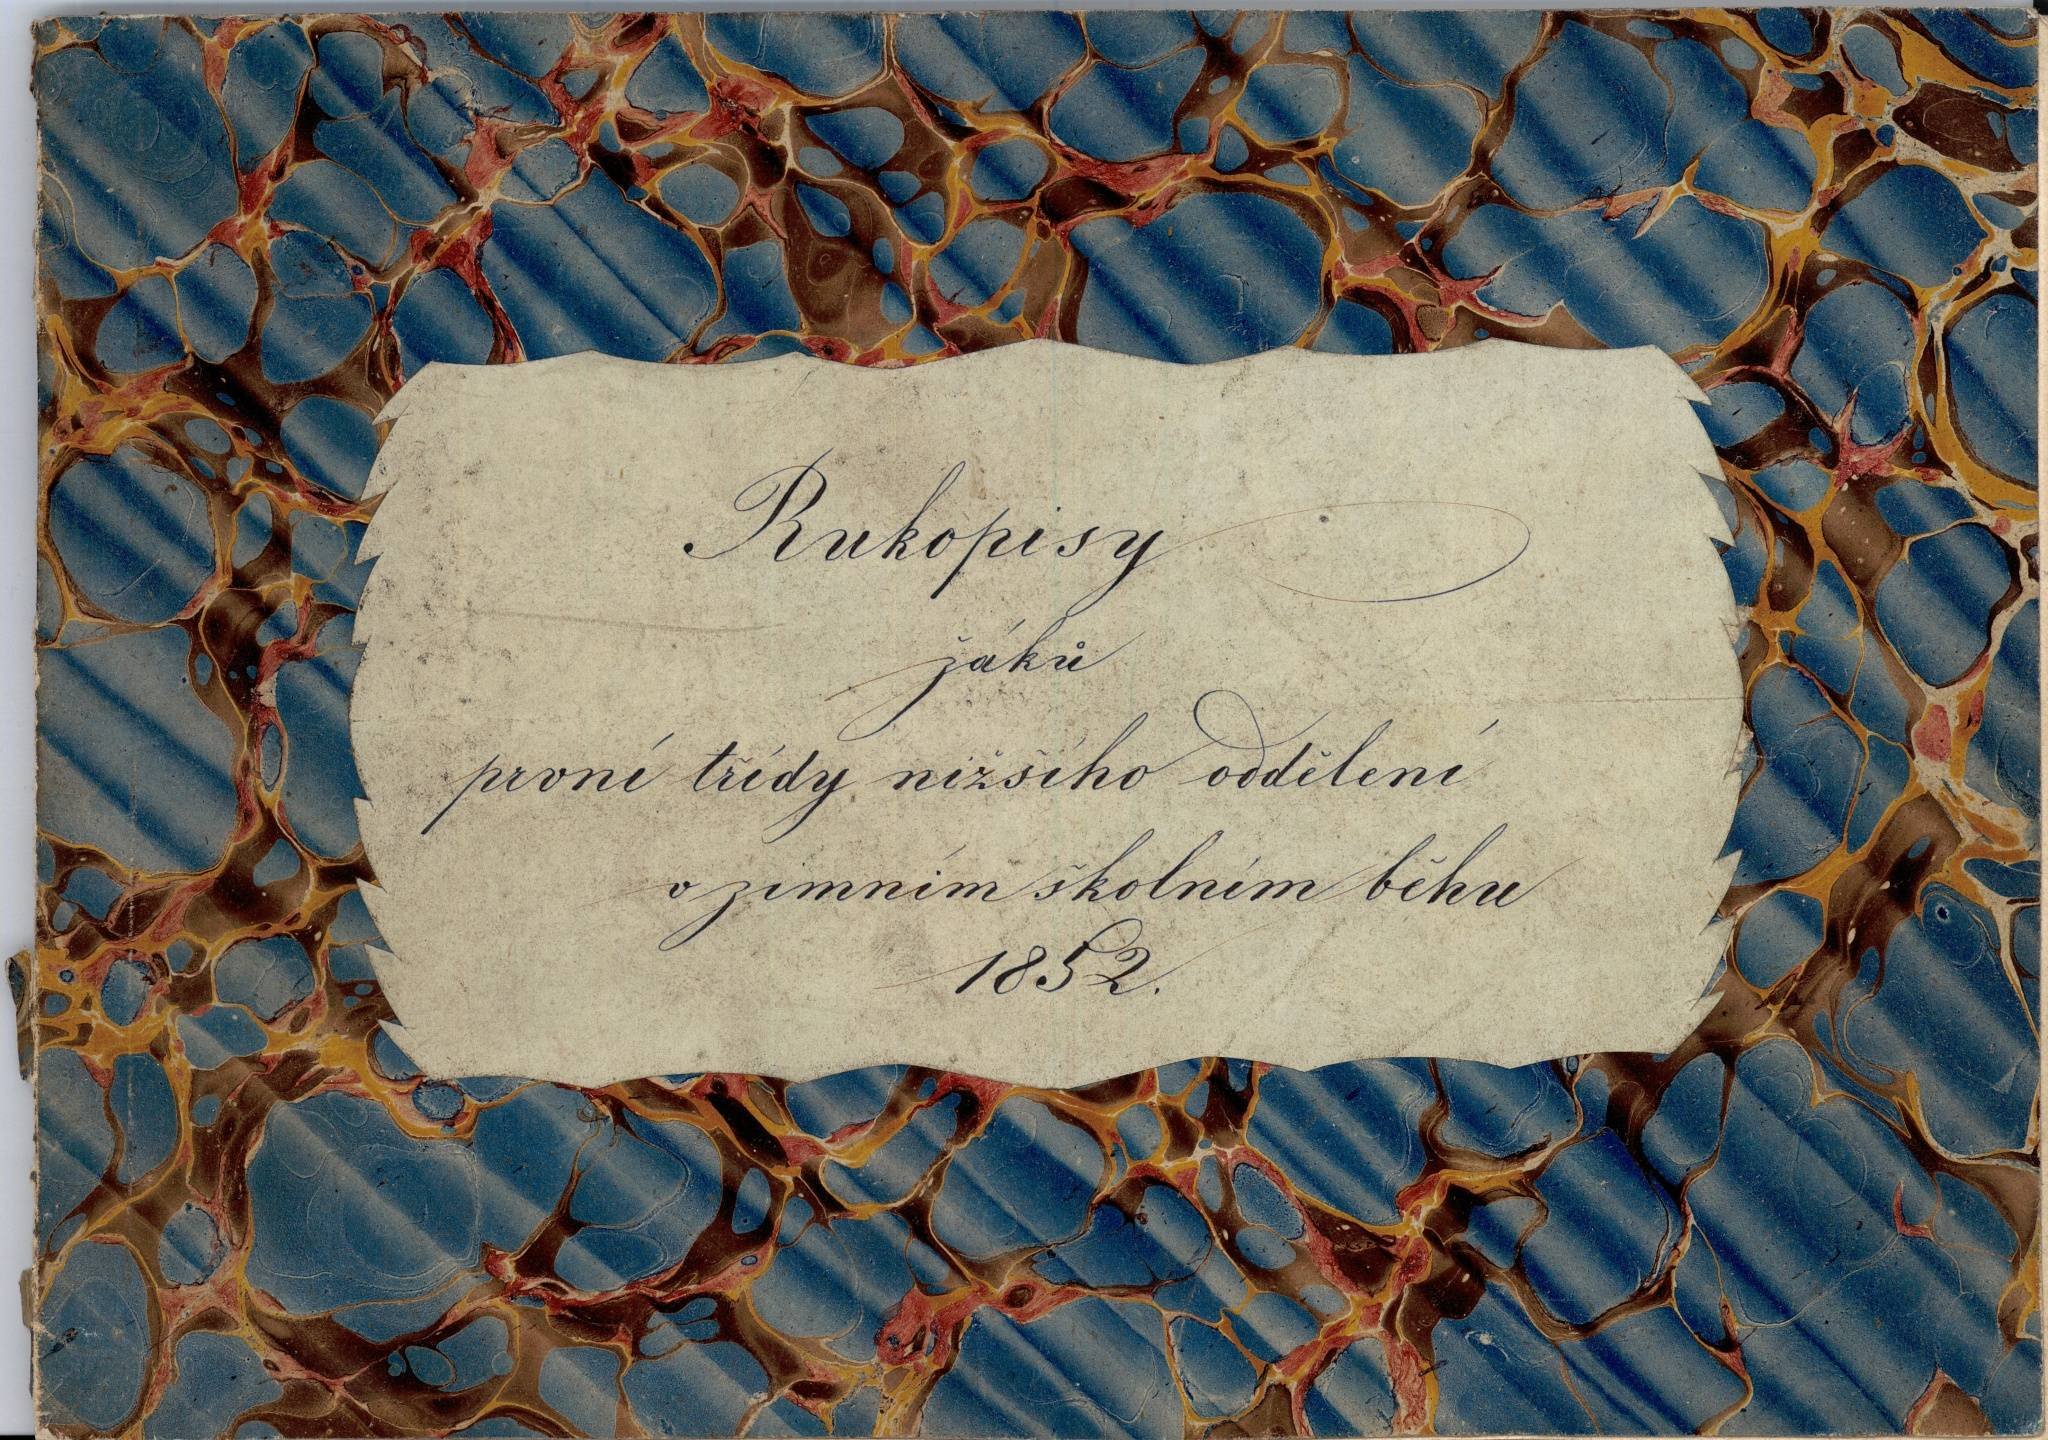 Rukopisy
žáků
první třídy nižšího oddělení
v zimním školním běhu
1852.